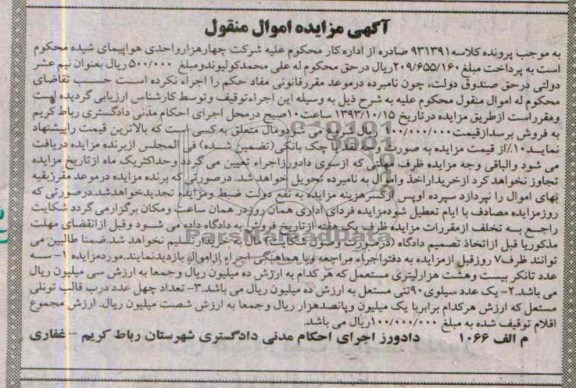 آگهی مزایده اموال منقول
به موجب پرونده کلاسه ۹۳۱۳۹۱ صادره از اداره کار محکوم علیه شرکت چهارهزارواحدی هواپیمای شیده محکوم
است به پرداخت مبلغ ۲۰۹/۶۵۵/۱۶۰ریال درحق محکوم له علی محمدکولیوندومبلغ ۵۰۰/۰۰۰ ریال بعنوان نیم عشر
دولتی درحق صندوق دولت، چون نامبرده درموعد مقررقانونی مفاد حکم را اجراء نکرده است حسب تقاضای
محکوم له اموال منقول محکوم علیه به شرح ذیل به وسیله این اجراءتوقیف وتوسط کارشناس ارزیابی گردیده است
ومقرراست ازطریق مزایده درتاریخ ۱۳۹۳/۱۰/۱۵ ساعت ۱۰صبح درمحل اجرای احکام مدنی دادگستری رباط کریم
به فروش برسدازقیمت ۱۰۰/۰۰۰/۰۰۰ می گرددومال متعلق به کسی است که بالاترین قیمت راپیشنهاد
نماید۱۰٪از قیمت مزایده به صورت چک بانکی(تضمین شده) فی المجلس ازبرنده مزایده دریافت
می شود والباقی وجه مزایده ظرف که ازسوی دادورزاجراء تعیین می گردد وحداکثریک ماه ازتاریخ مزایده
تجاوز نخواهد کرد ازخریداراخذ واموال به نامبرده تحویل خواهد شد. درصورتی که برنده مزایده درموعد مقرربقیه
بهای اموال را نپردازد سپرده اوپس ازکسرهزینه مزایده به نفع دولت ضبط ومزایده تجدیدخواهدشد.درصورتی که
روزمزایده مصادف با ایام تعطیل شودمزایده فردای اداری همان روزدر همان ساعت ومکان برگزارمی گردد شکایت
راجع به تخلف ازمقررات مزایده ظرف یک هفته ازتاریخ فروش به دادگاه داده می شود وقبل ازانقضای مهلت
مذکوریا قبل ازاتخاذ تصمیم دادگاه تسلیم نخواهد شد.ضمنا طالبین می
توانند ظرف۷ روزقبل ازمزایده به دفتراجراء مراجعه وبا هماهنگی اجراء ازاموال بازدیدنمایند.موردمزایده ۱- سه
عدد تانکر بیست وهشت هزارلیتری مستعمل که هر کدام به ارزش ده میلیون ریال وجمعا به ارزش سی میلیون ریال
می باشد.۲- یک عدد سیلوی۹۰تنی مستعل به ارزش ده میلیون ریال می باشد.۳- تعداد چهل عدد درب قالب تونلی
مستعل که ارزش هرکدام برابربا یک میلیون وپانصدهزار ریال وجمعا به ارزش شصت میلیون ریال. ارزش مجموع
اقلام توقیف شده به مبلغ ۱۰۰/۰۰۰/۰۰۰ریال می باشد.
م الف ۱۰۶۶ دادورز اجرای احکام مدنی دادگستری شهرستان رباط کریم - غفاری
ParsNamadData